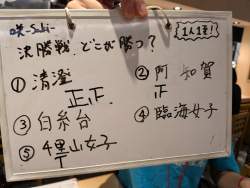 咲-Saki-
1人1票!!
決勝戦、どこが勝つ?
①清澄
正正
②阿知賀
正
③白糸台
④臨海女子
⑤千里山女子